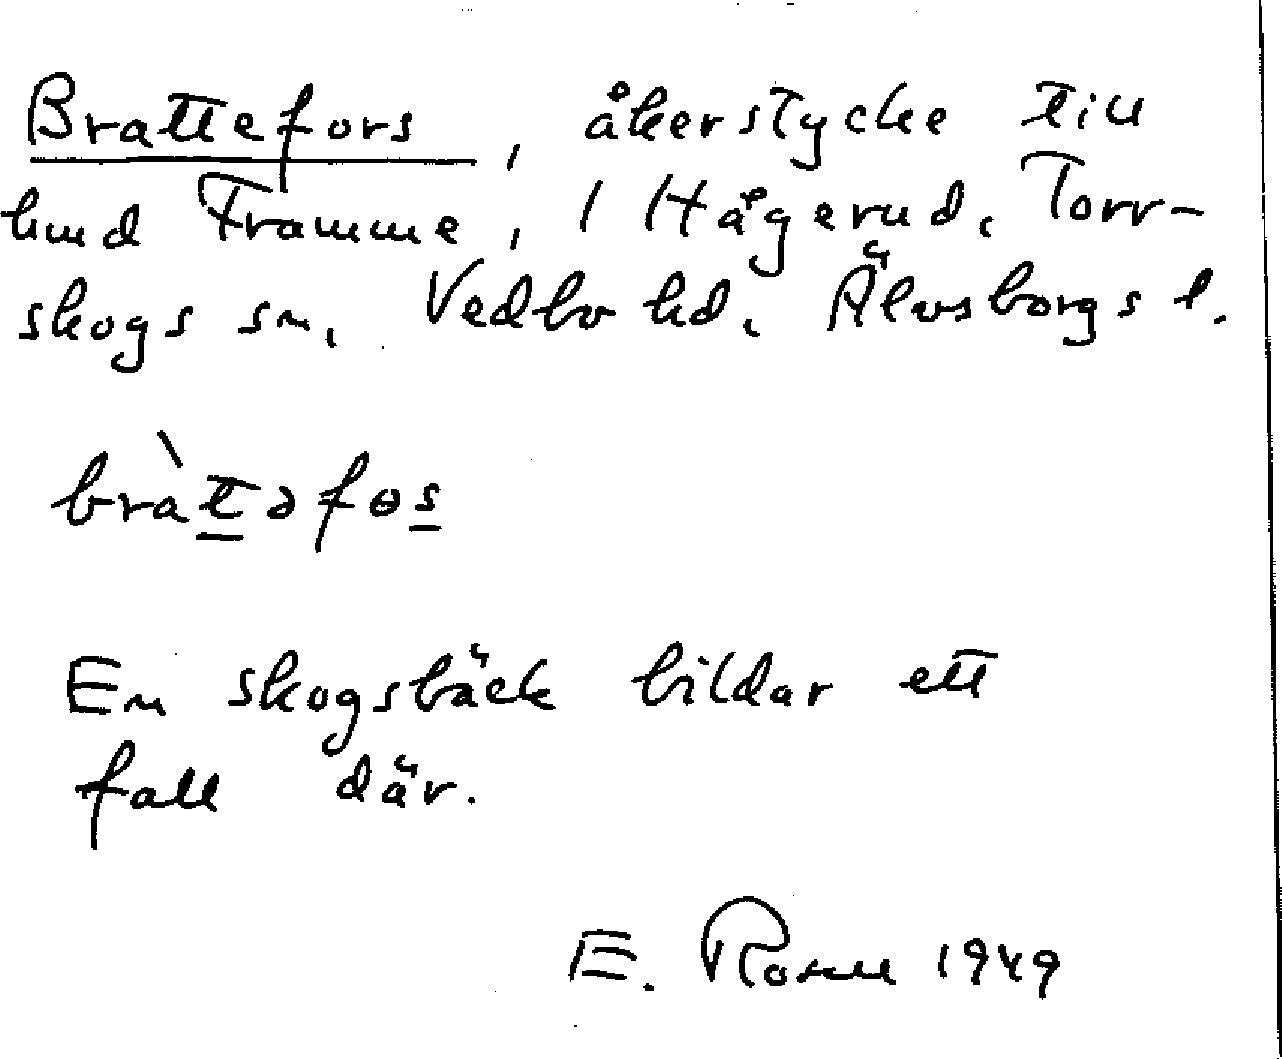 Brattefors, åkerstycke till
hmd Framme, i Hågerud, Torr-
skogs sn, Vedbo hd, Älvsborgs l.
bràt̲əfɵs̲
En skogsbäck bildar ett
fall där.
E. Rosell 1949